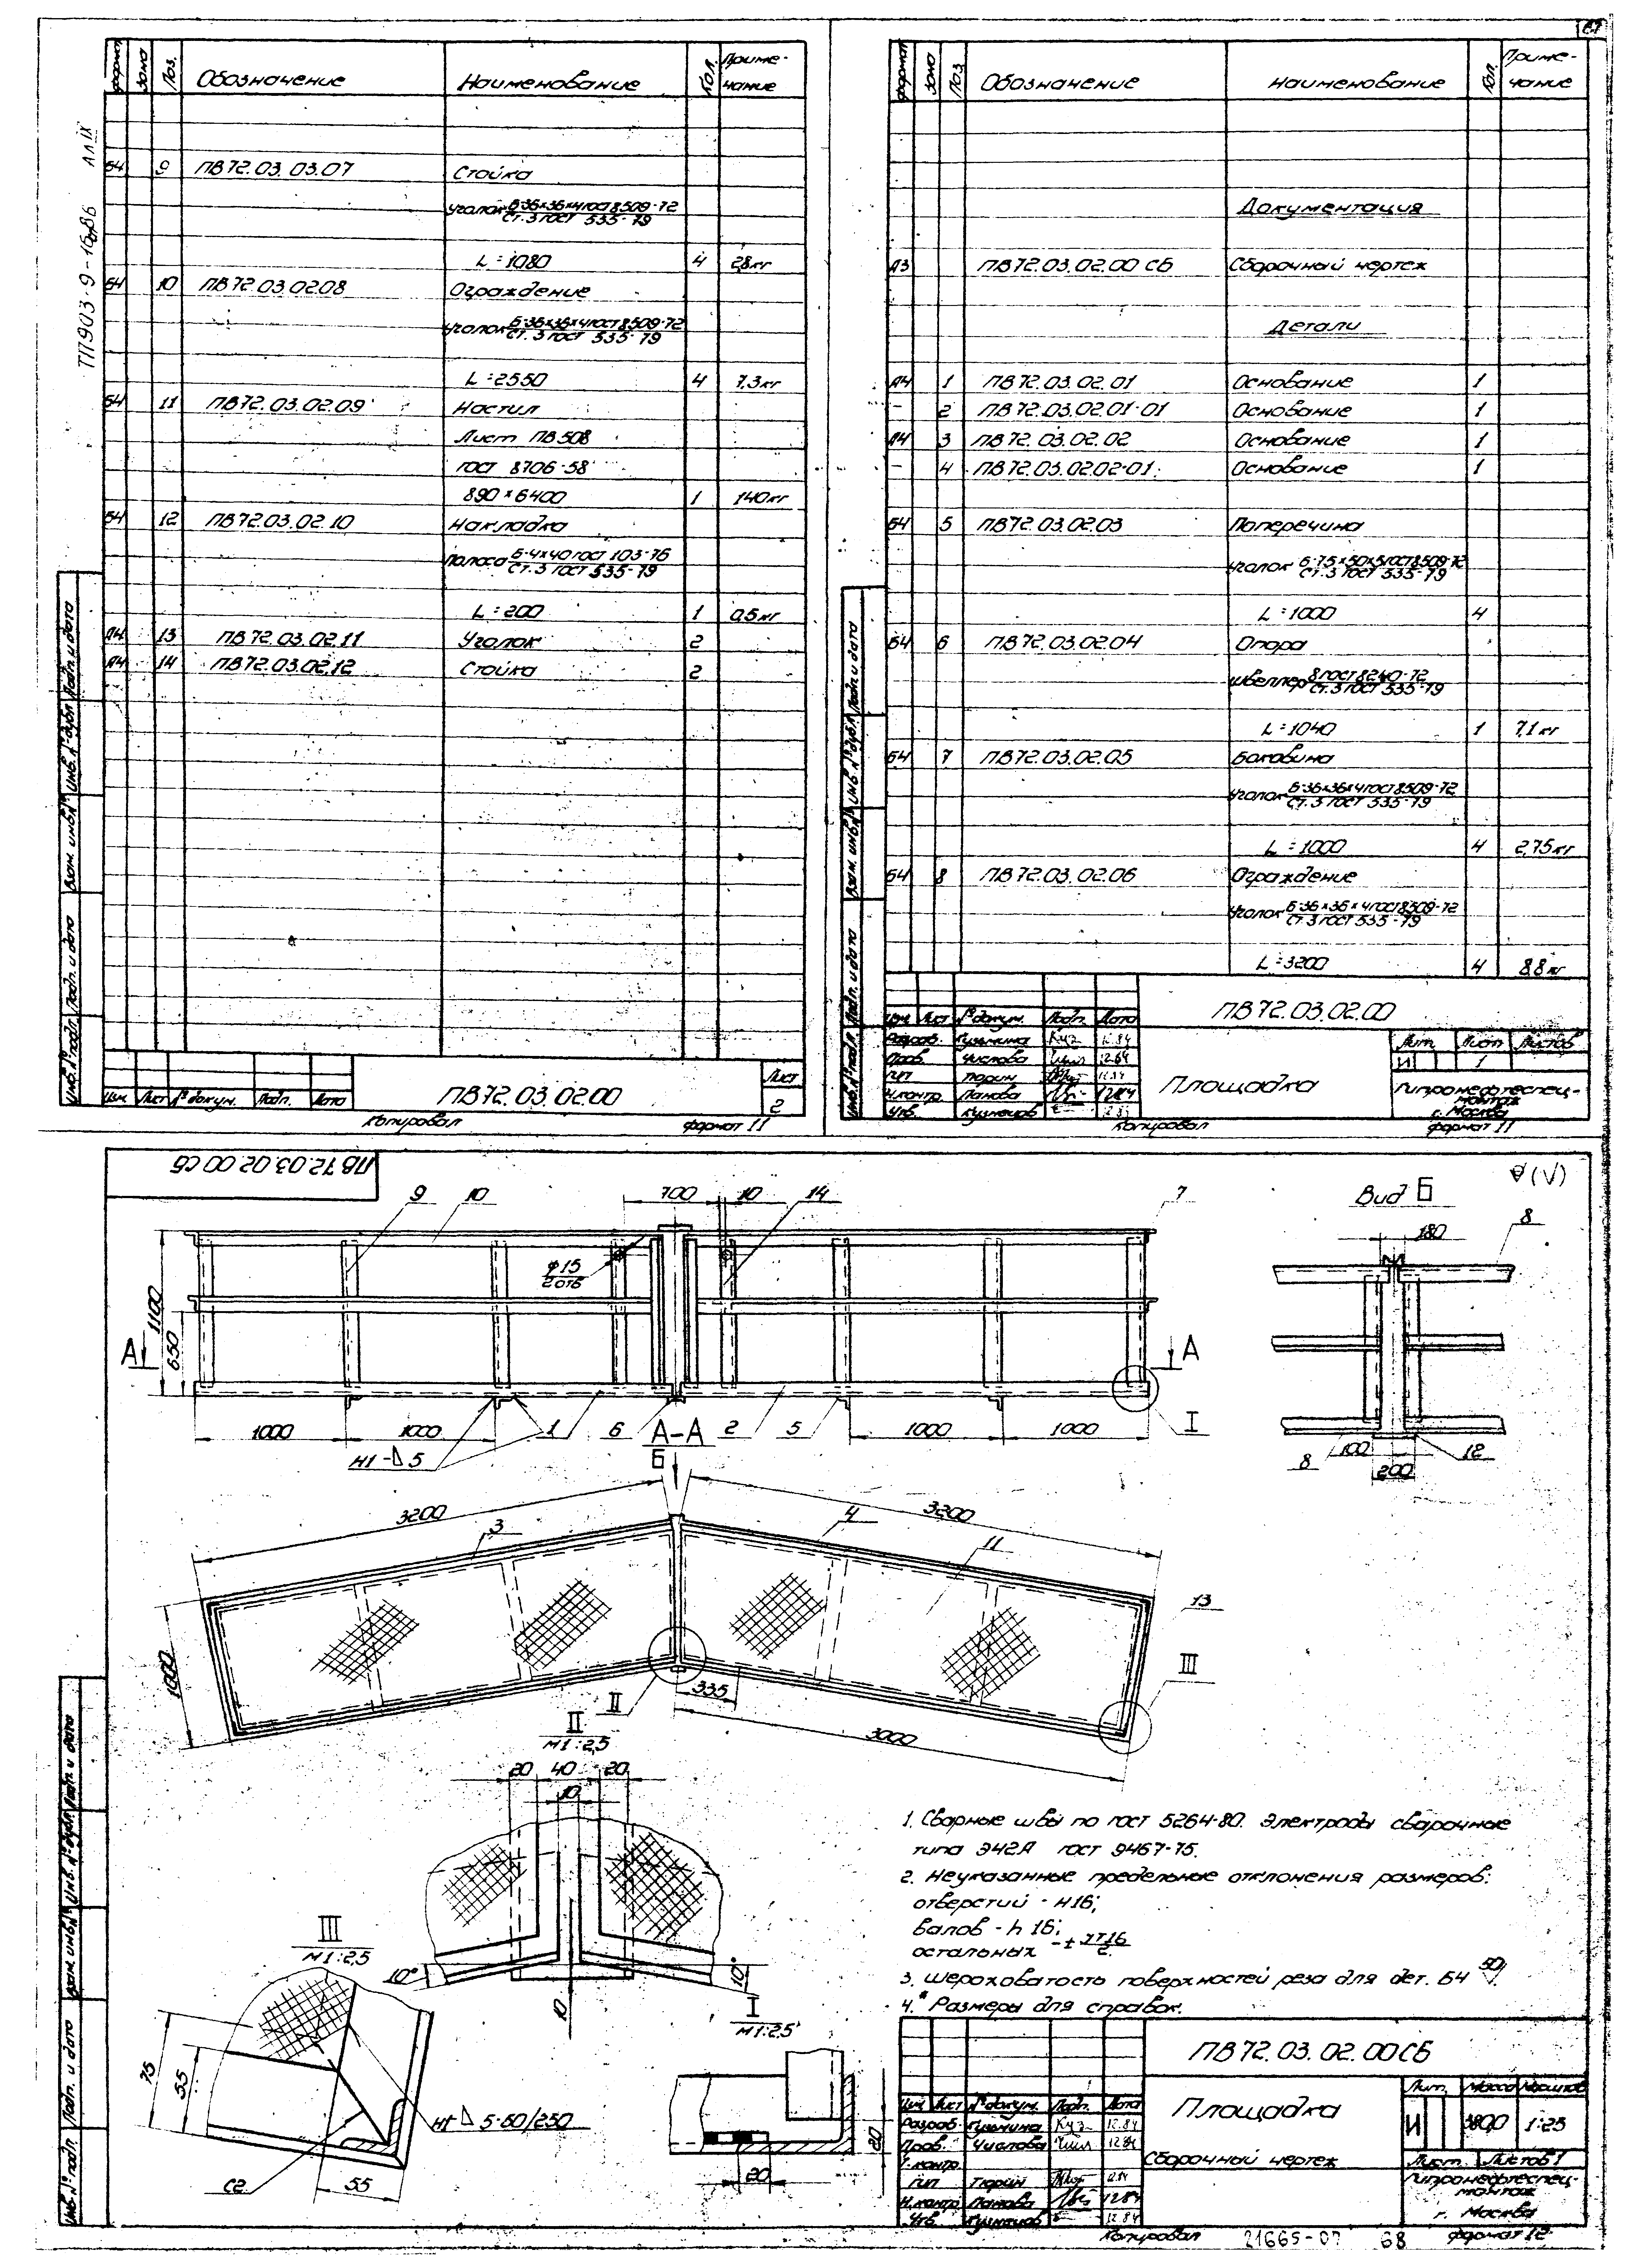 ТП903-9-16.86 Ал IX
Формат Зона Поз. Обозначение Наименование Кол. Примечание
Б4 9 ПВ72.03.03.07 Стойка
Уголок Б-36х36х4 ГОСТ 8509-72
Ст.3 ГОСТ 535-79
L=1080 4 2,8кг
Б4 10 ПВ72.03.02.08 Ограждение
Уголок Б-36х36х4 ГОСТ 8509-72
Ст.3 ГОСТ 535-79
L=2550 4 7,3кг
Б4 11 ПВ72.03.02.09 Настил
Лист ПВ508
ГОСТ 8706-58
890×6400 1 140кг
Б4 12 ПВ72.03.02.10 Накладка
Полоса Б-4х40 ГОСТ 103-76
Ст.3 ГОСТ 535-79
L=200 1 0,5кг
А4 13 ПВ72.03.02.11 Уголок 2
А4 14 ПВ72.03.02.12 Стойка 2
Инв. № подл. Подп. и дата Взам. инв. № Инв. № дубл. Подп. и дата
Изм. Лист № докум. Подп. Дата
ПВ72.03.02.00
Лист
2
Копировал формат 11
67
Формат Зона Поз. Обозначение Наименование Кол. Примечание
Документация
А3 ПВ72.03.02.00 СБ Сборочный чертеж
Детали
А4 1 ПВ72.03.02.01 Основание 1
- 2 ПВ72.03.02.01-01 Основание 1
А4 3 ПВ72.03.02.02 Основание 1
- 4 ПВ72.03.02.02-01 Основание 1
Б4 5 ПВ72.03.02.03 Поперечина
Уголок Б-75х50х5 ГОСТ 8509-72
Ст.3 ГОСТ 535-79
L=1000 4
Б4 6 ПВ72.03.02.04 Опора
Швеллер 8 ГОСТ 8240-72
Ст.3 ГОСТ 535-79
L=1040 1 7,1кг
Б4 7 ПВ72.03.02.05 Боковина
Уголок Б-36х36х4 ГОСТ 8509-72
Ст.3 ГОСТ 535-79
L=1000 4 2,75кг
Б4 8 ПВ72.03.02.06 Ограждение
Уголок Б-36х36х4 ГОСТ 8509-72
Ст.3 ГОСТ 535-79
L=3200 4 8,8кг
Инв. № подл. Подп. и дата Взам. инв. № Инв. № дубл. Подп. и дата
ПВ72.03.02.00
Изм. Лист № докум. Подп. Дата
Разраб. Кузьмина 12.84
Пров. Числова 12.84
ГИП Тюрин 12.84
Н.контр. Панова 12.84
Утв. Кузнецов
Площадка
Лит. Лист Листов
И 1
Гипронефтеспец-
монтаж
г. Москва
Копировал формат 11
ПВ72.03.02.00 СБ
9 10 700 10 14 7
⌀15
2 отв
1100
650
А А
1000 1000 1 6 2 5 1000 1000 I
Н1-⊿5
Вид Б
180 8
8 100 200 12
А-А
Б
3200 3 4 3200
11
13
1000
II 335 III
3000
II
М1:2,5
20 40 20
10
10° 10°
10
III
М1:2,5
75
55
Н1-⊿5-50/250
С2 55
I
М1:2,5
20
20
1. Сварные швы по ГОСТ 5264-80. Электроды сварочные
типа Э42А ГОСТ 9467-75.
2. Неуказанные предельные отклонения размеров:
отверстий - Н16;
валов - h 16;
остальных - ± IT16/2
3. Шероховатость поверхностей реза для дет. Б4 50
4.* Размеры для справок.
Инв. № подл. Подп. и дата Взам. инв. № Инв. № дубл. Подп. и дата
ПВ72.03.02.00СБ
Изм. Лист № докум. Подп. Дата
Разраб. Кузьмина 12.84
Пров. Числова 12.84
Т.контр.
ГИП Тюрин 12.84
Н.контр. Панова 12.84
Утв. Кузнецов 12.84
Площадка
Сборочный чертеж
Лит. Масса Масштаб
И 1:25
Лист Листов 1
Гипронефтеспец-
монтаж
г. Москва
Копировал 21665-07 68 формат 12